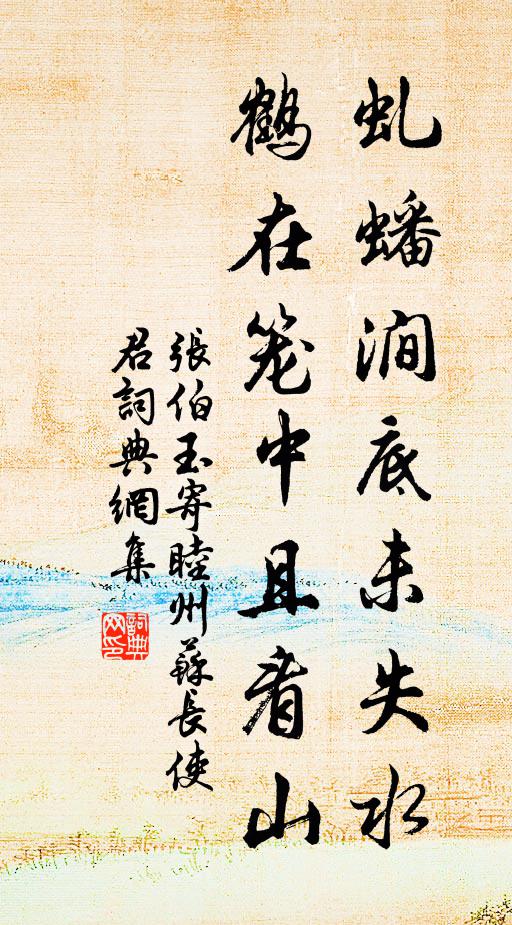 虬蟠澗底未失水
鶴在笼中且看山
張伯玉寄睦州蘇長使
君詞典網集
詞典
网印